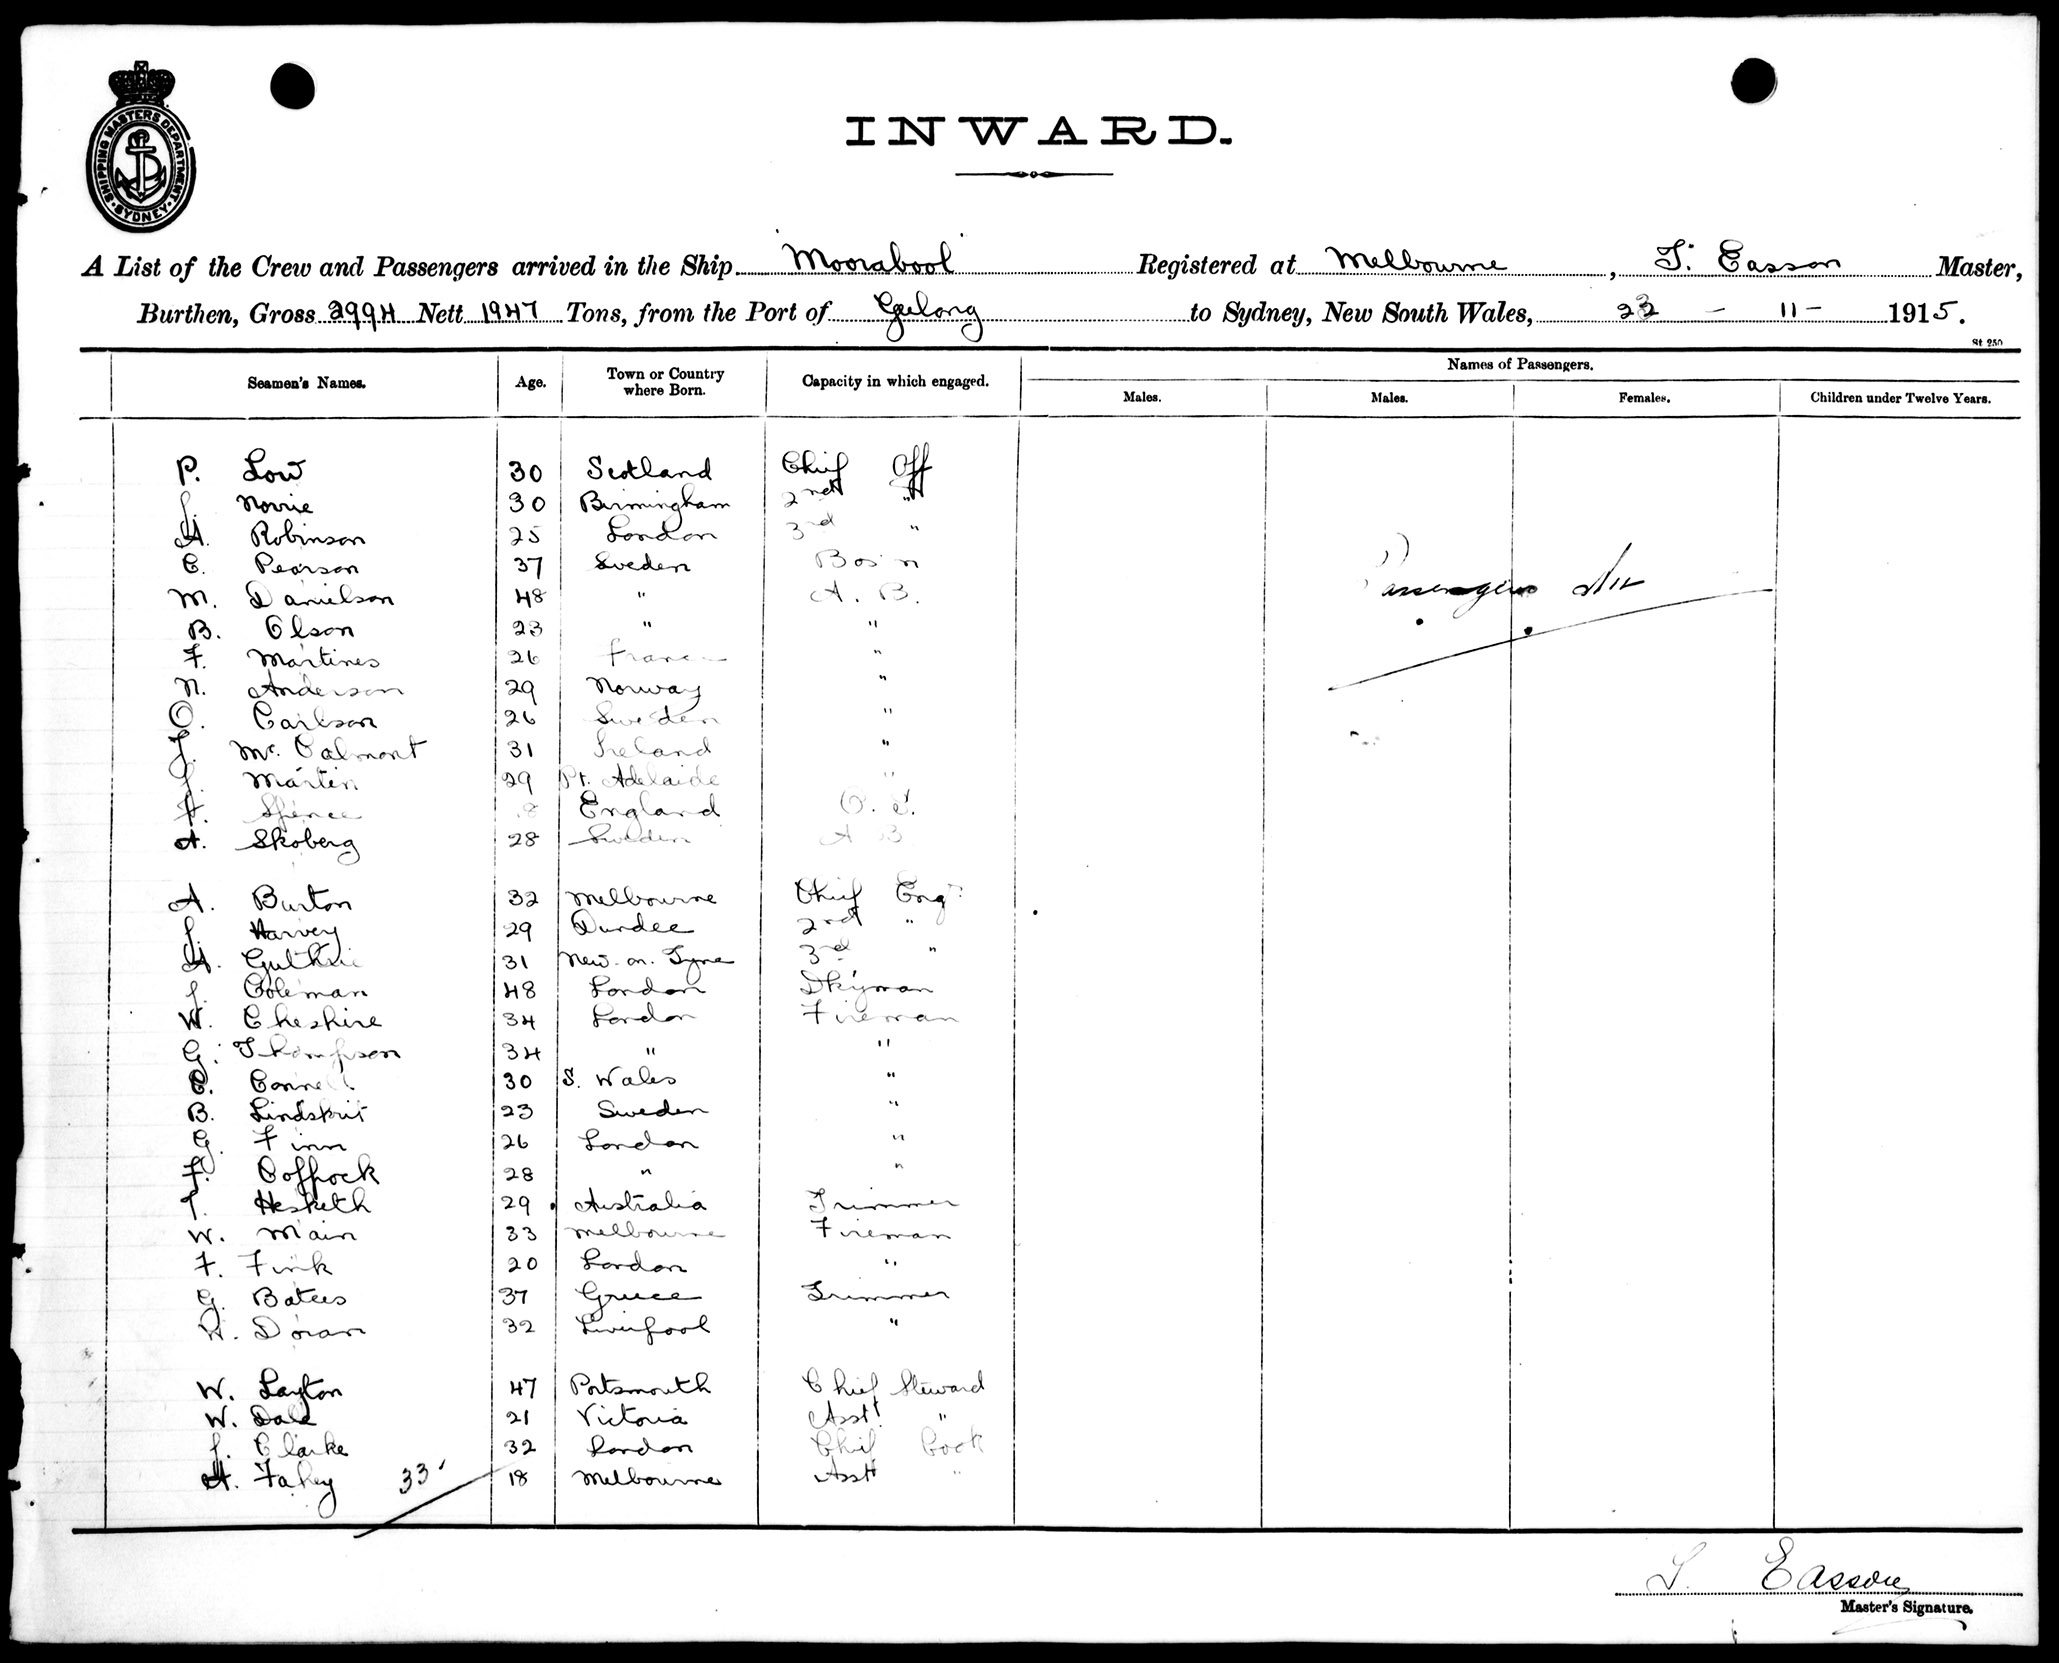 SHIPPING MASTERS DEPARTMENT
SYDNEY
INWARD.
A List of the Crew and Passengers arrived in the Ship Moorabool Registered at Melbourne, T. Easson Master,
Burthen, Gross 2994 Nett 1947 Tons, from the Port of Geelong to Sydney, New South Wales, 23 - 11 - 1915.
St 250
Seamen's Names. Age. Town or Country where Born. Capacity in which engaged. Names of Passengers.
Males. Males. Females. Children under Twelve Years.
P. Low 30 Scotland Chief Off
J. Norrie 30 Birmingham 2nd "
A. Robinson 25 London 3rd "
C. Pearson 37 Sweden Bos'n
M. Danielson 48 " A. B.
Passengers Nil
B. Olson 23 " "
F. Martines 26 France "
N. Anderson 29 Norway "
O. Carlson 26 Sweden "
J. Mc. Calmont 31 Ireland "
J. Martin 29 Pt. Adelaide "
Spence England O. S.
A. Skoberg 28 Sweden A B
A. Burton 32 Melbourne Chief Engr
J. Harvey 29 Dundee 2nd "
Guthrie 31 New. on. Tyne 3rd "
J. Coleman 48 London Dkyman
W. Cheshire 34 London Fireman
G. Thompson 34 " "
C. Connell 30 S. Wales "
B. Lindskrit 23 Sweden "
G. Finn 26 London "
F. Coppock 28 " "
T. Hesketh 29 Australia Trimmer
W. Main 33 Melbourne Fireman
F. Fink 20 London "
G. Batees 37 Greece Trimmer
W. Doran 32 Liverpool "
W. Layton 47 Portsmouth Chief Steward
W. Dale 21 Victoria Asst "
J. Clarke 32 London Chief Cook
Fahey 33 18 Melbourne Asst "
T. Easson
Master's Signature.